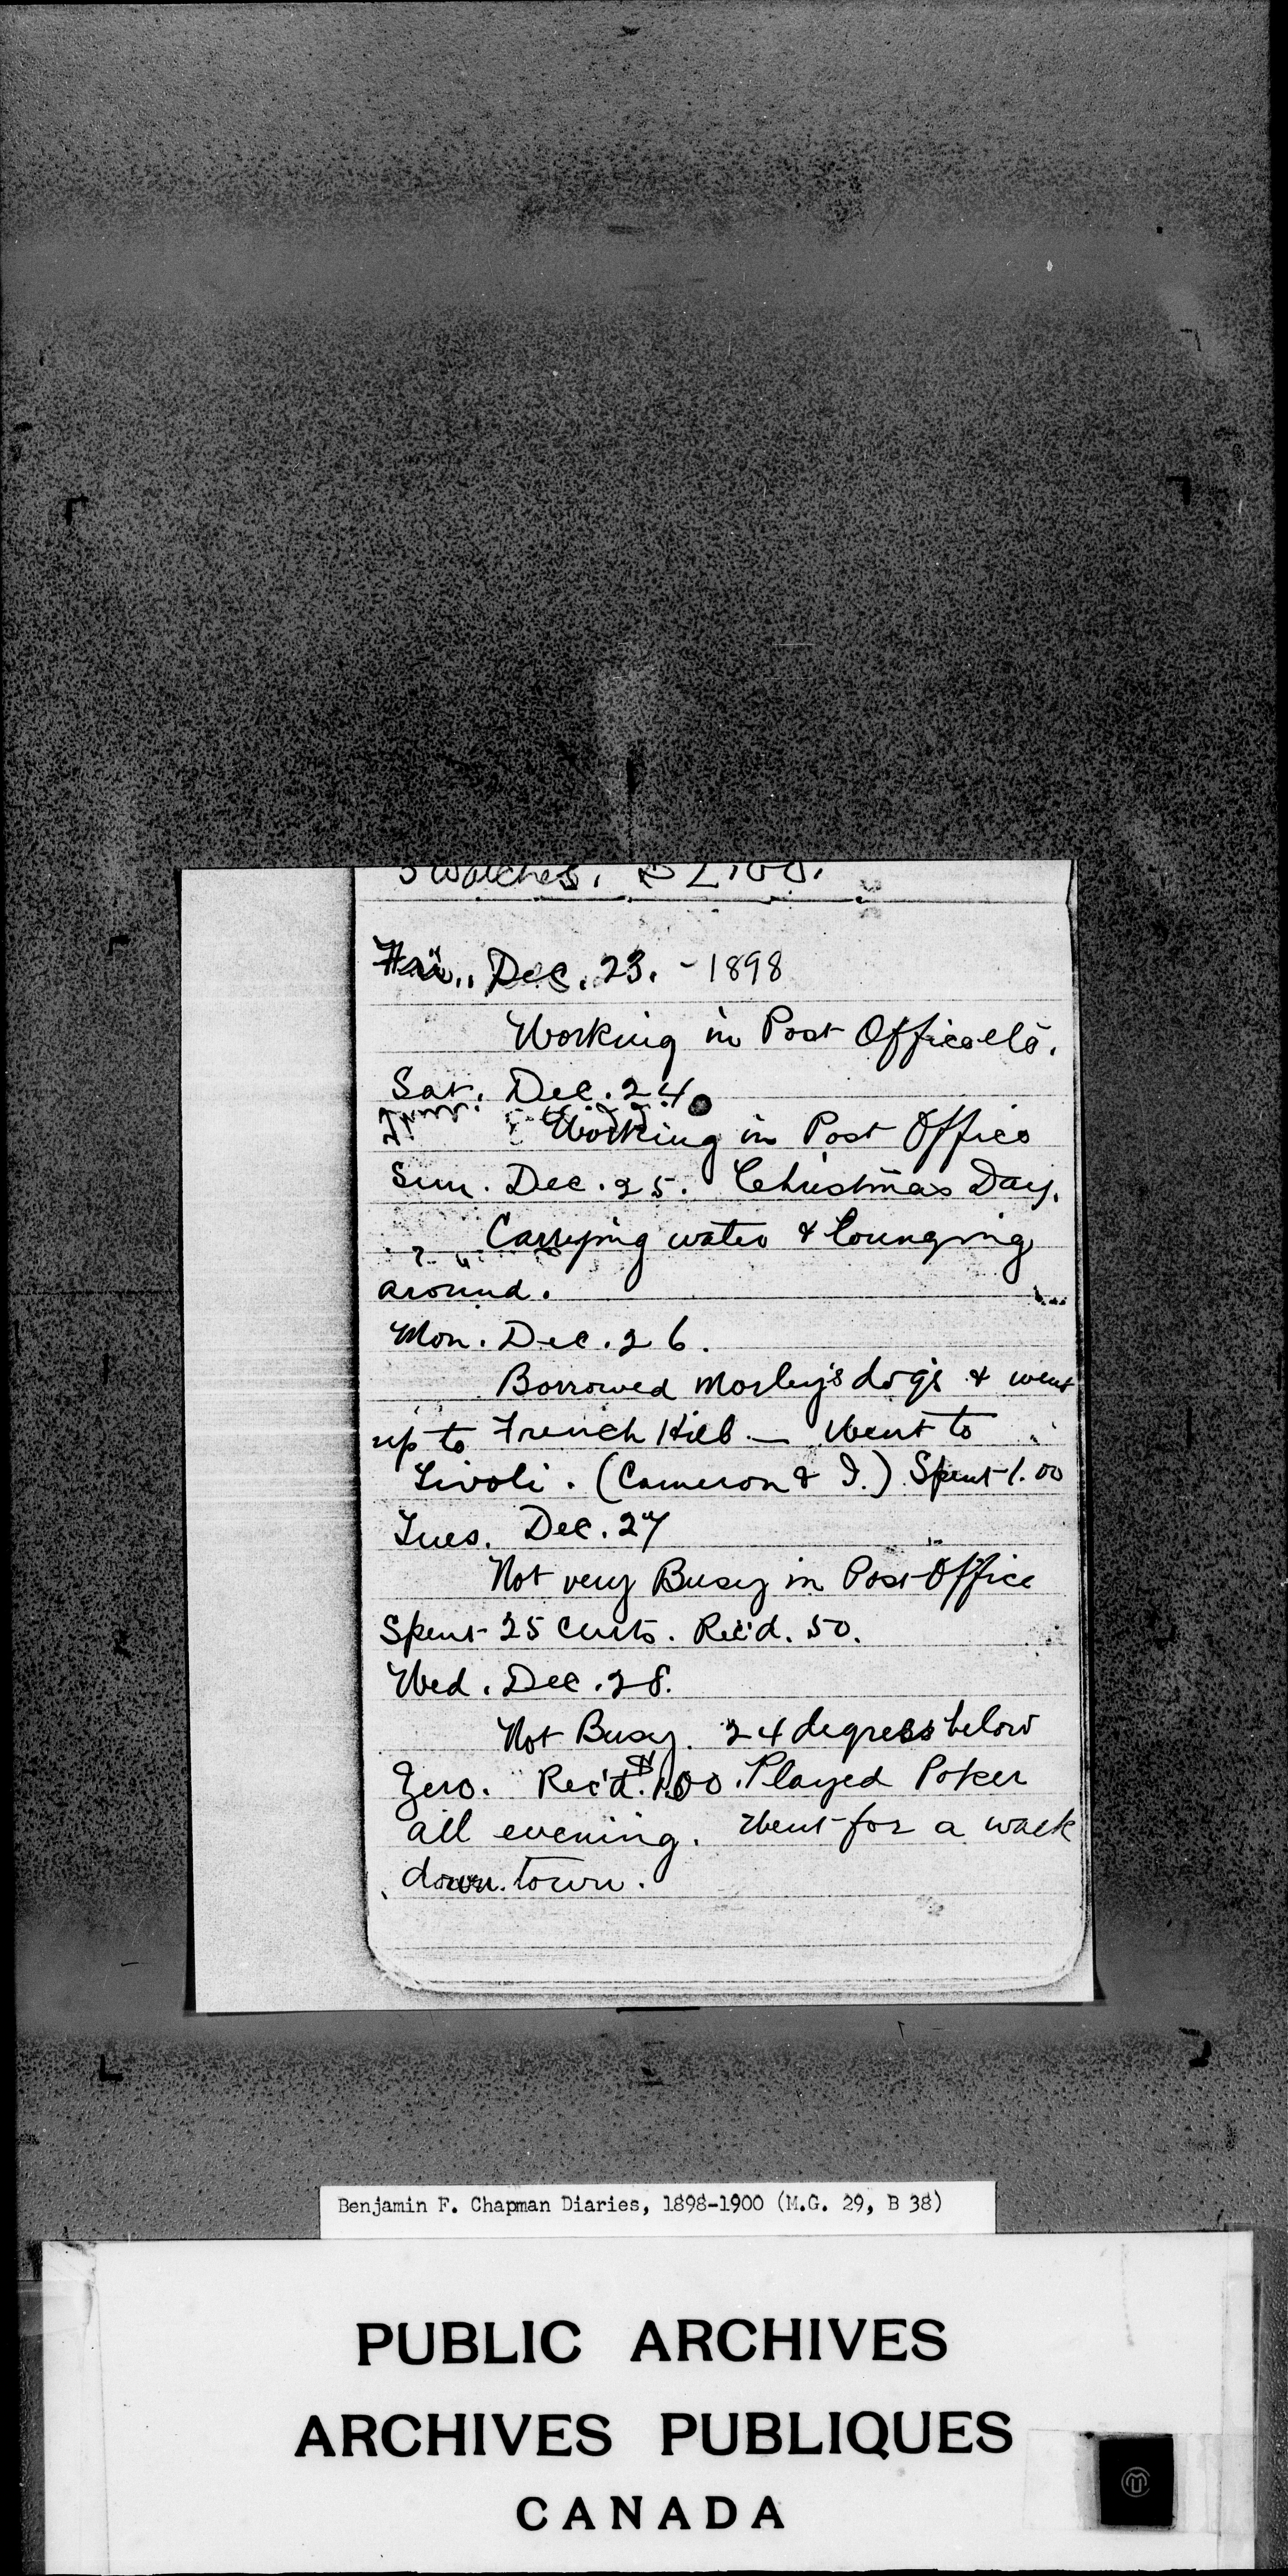 3 watches. $2.00.
Fri., Dec. 23. - 1898
Working in Post Office etc.
Sat. Dec. 24.
Working in Post Office
Sun. Dec. 25. Christmas Day.
Carrying water & lounging
around.
Mon. Dec. 26.
Borrowed Morley's dogs & went
up to French Hill — Went to
Tivoli. (Cameron & I.) Spent 1.00
Tues. Dec. 27
Not very Busy in Post Office
Spent 25 cents. Rec'd. 50.
Wed. Dec. 28.
Not Busy. 24 degress below
Zero. Rec'd. $1.00. Played Poker
all evening. Went for a walk
down town.
Benjamin F. Chapman Diaries, 1898-1900 (M.G. 29, B 38)
PUBLIC ARCHIVES
ARCHIVES PUBLIQUES
CANADA